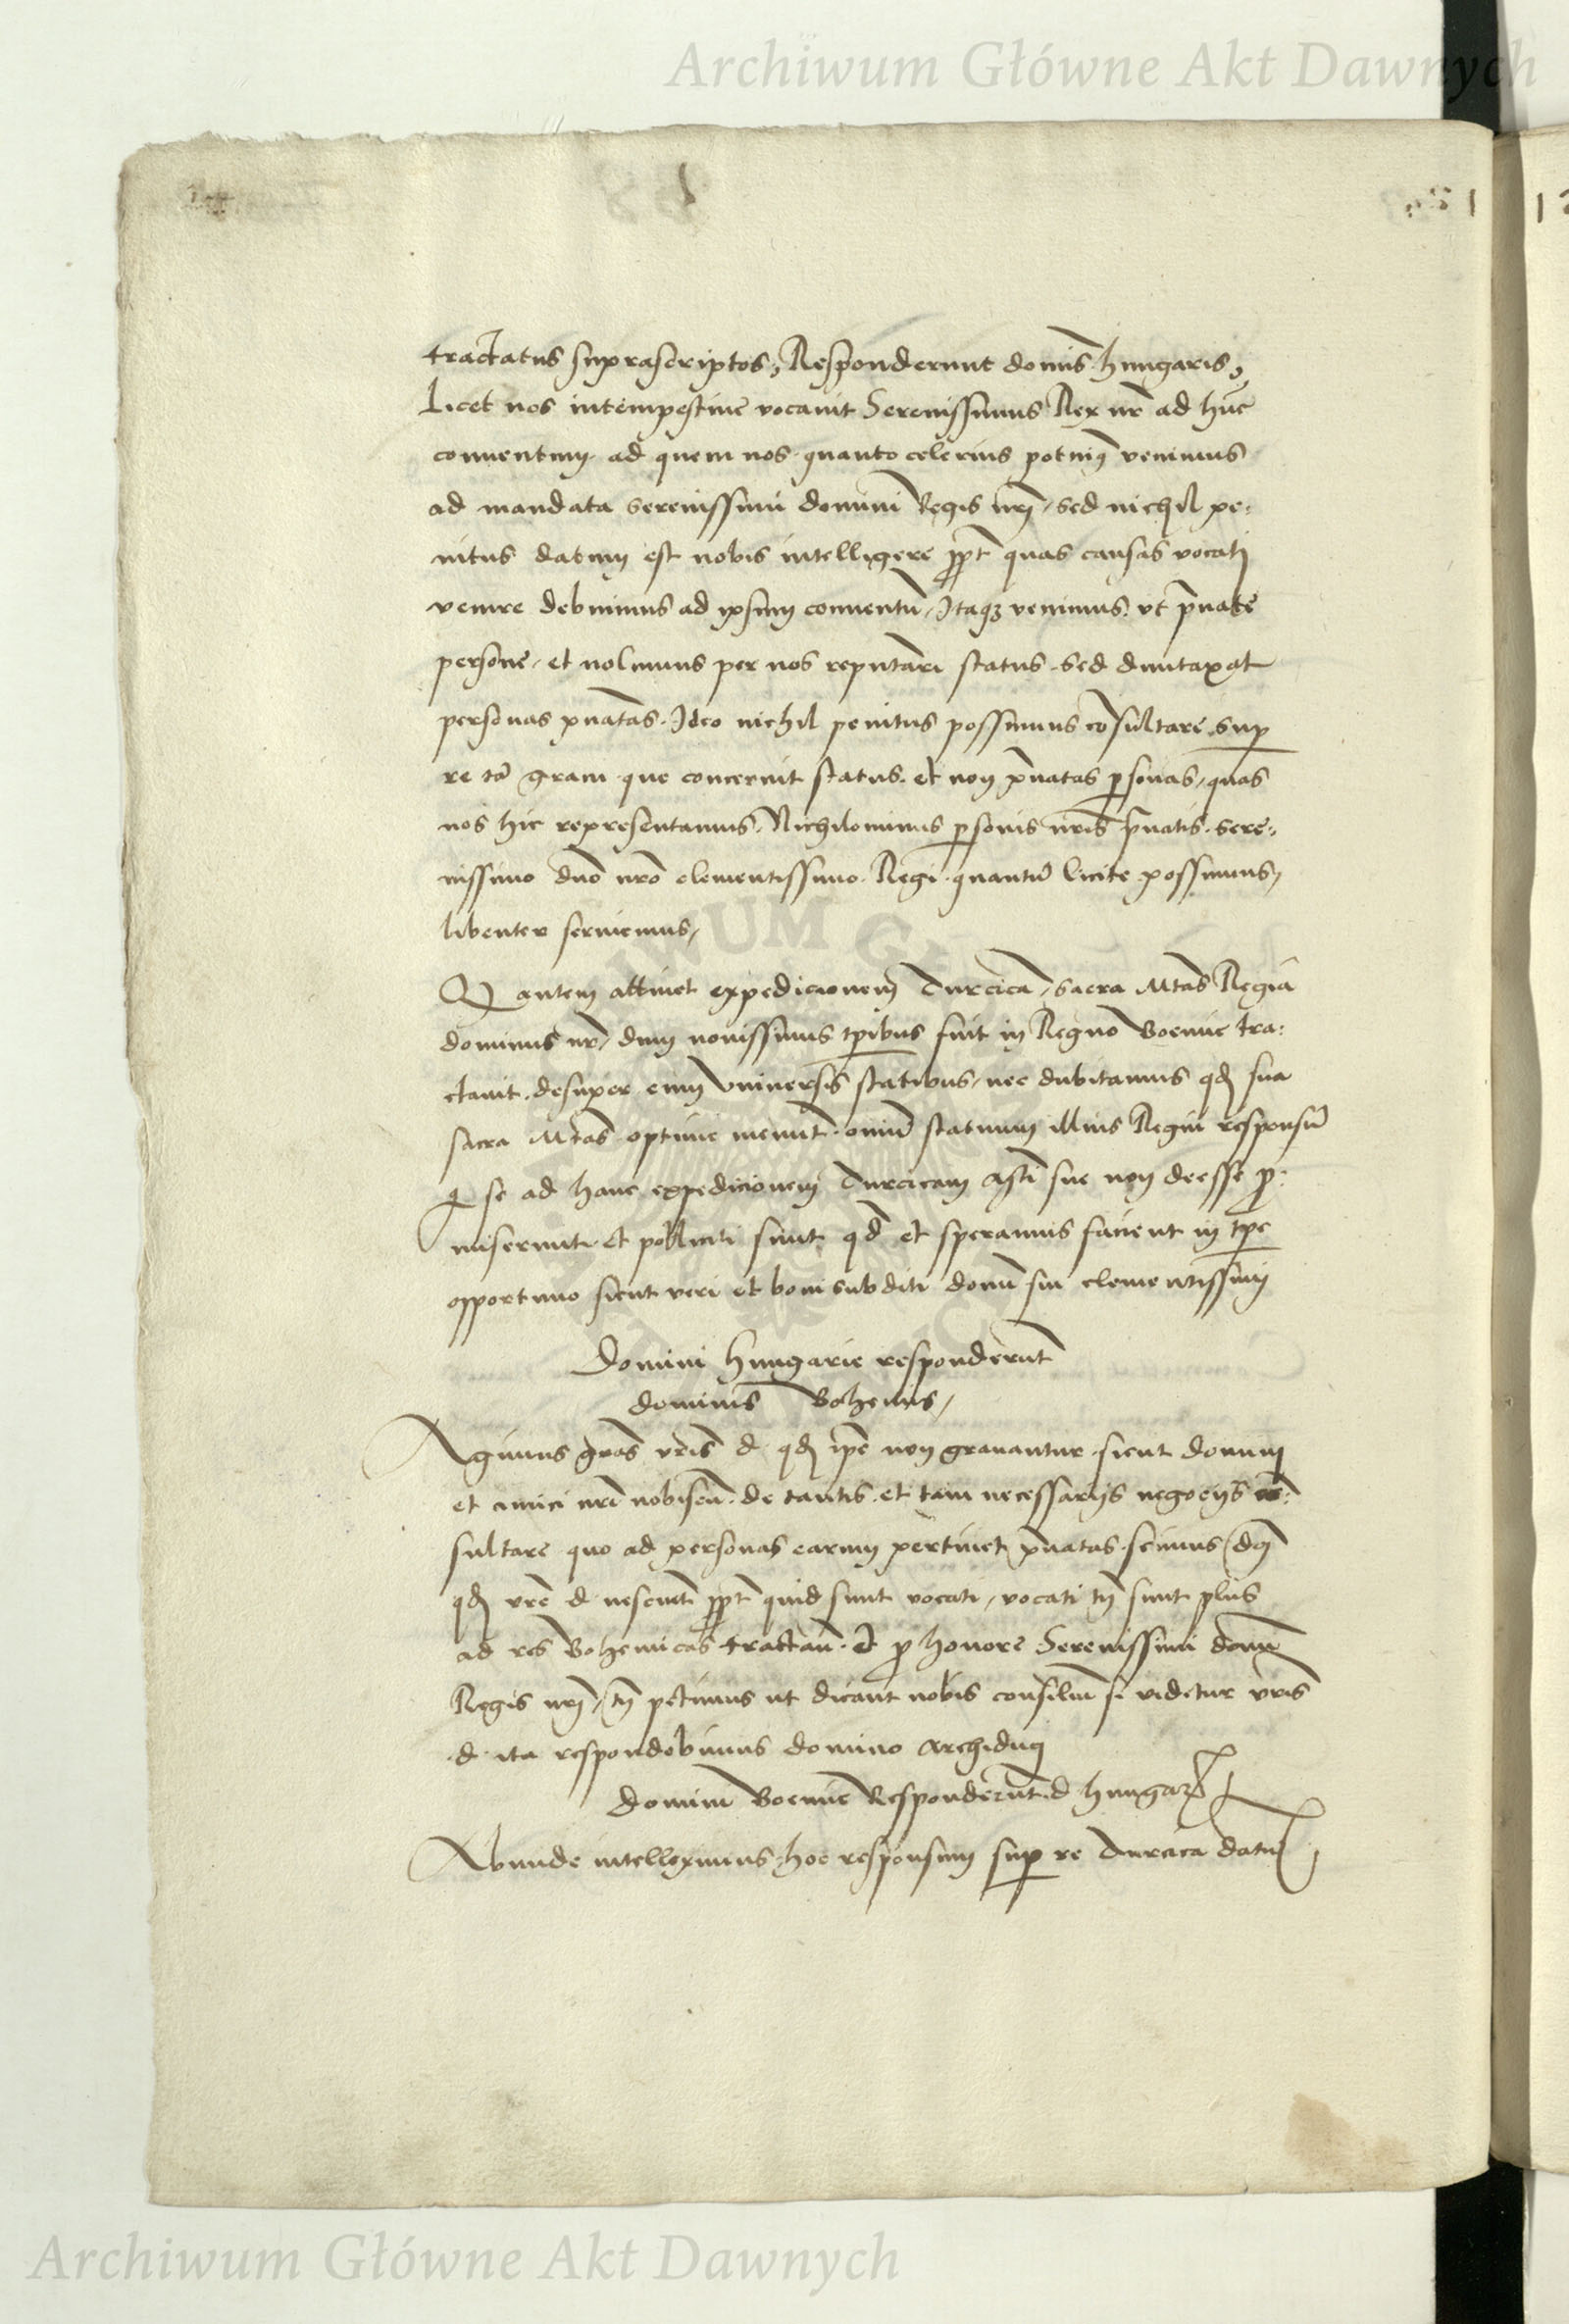 Archiwum Główne Akt Dawnych
tractatus suprascriptos, Responderunt domis hungaris,
Licet nos intempestiue vocauit Serenissimus Rex nr ad hūc
conuentum. ad quem nos quanto celerius potuimꝰ venimus
ad mandata serenissimi domini Regis nri, sed nichil pe:
nitus datum est nobis intelligere ppt quas causas vocati
venire debuimus ad ipsum conuentū, Itaqꝫ venimus. vt pͥuate
persone, et nolumus per nos reputari status. sed duntaxat
personas pͥuatas. Ideo nichil penitus possumus cōsultare sup
re tā graui que concernit status. et non pͥuatas psonas, quas
nos hic representamus. Nichilominus psonis nris pͥuatis. sere:
nissimo dno nro clementissimo Regi quantū licite possumus,
libenter seruiemus,
Qd autem attinet expedicionem Turcicā, sacra Mtas Regia
dominus nr, dum nouissimis tpibus fuit in Regno Boemie tra:
ctauit. desuper cum vniuersis statibus, nec dubitamus qd sua
sacra Mtas optime meminit omniū statuum illius Regni responsū
qd se ad hanc expedicionem Turcicam Mti sue non deesse p:
miserunt. et polliciti sunt qd et speramus facient in tpe
opportuno sicut veri et boni subditi domi sui clementissimi
Domini hungarie responderunt
dominis Bohemis,
Agimus gras vris d qd ipe non grauantur sicut domini
et amici nri nobiscū. de tantis. et tam necessarijs negocijs cō:
sultare quo ad personas earum pertinet pͥuatas. scimus
qd vre d nesciunt ppt quid sunt vocati, vocati tn sunt plus
ad res Bohemicas tractan. Et p honore Serenissimi domi
Regis nri, tn petimus ut dicant nobis consiliū si videtur vris
d ita respondebimus domino Archiduci
Domini Boemie Responderunt d hungar
Abunde intelleximus hoc responsum sup re Turcica datū,
Archiwum Główne Akt Dawnych